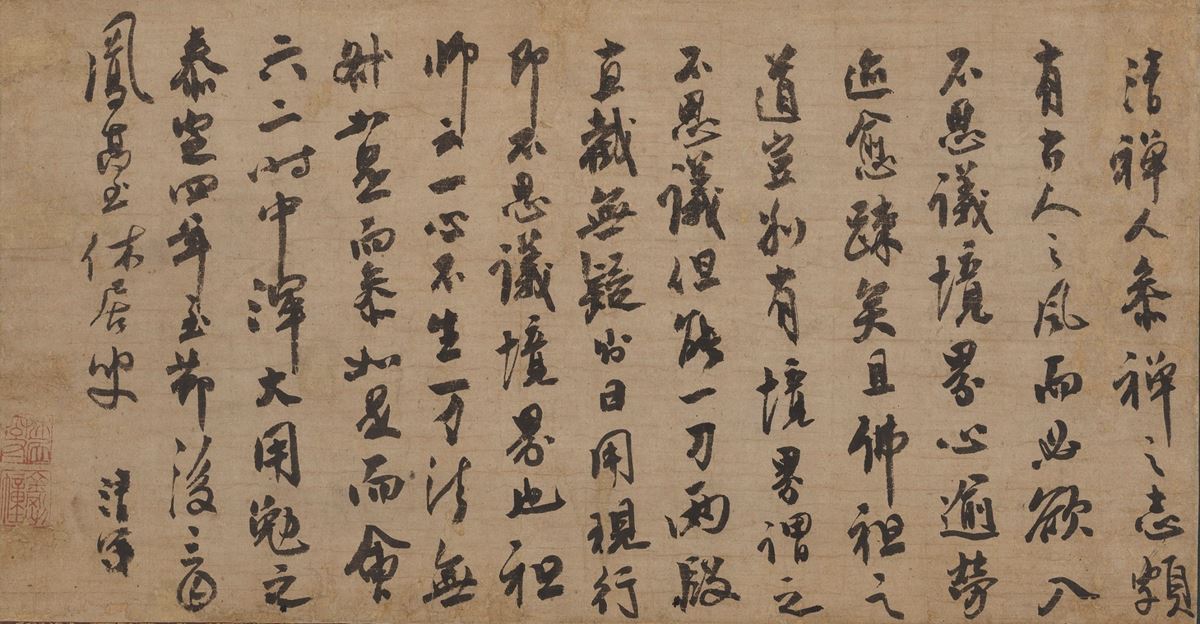 清禅人叅禅之志頗
有古人之風而必欲入
不思議境界心逾勞
迹愈踈矣且佛祖之
道豈別有境界謂之
不思議但能一刀兩段
直截無疑於日用現行
即不思議境界也祖
師云一心不生万法無
咎如是而叅如是而會
六二时中渾大用勉之
泰定四年至節後三百
鳳髙臺休居叟 清